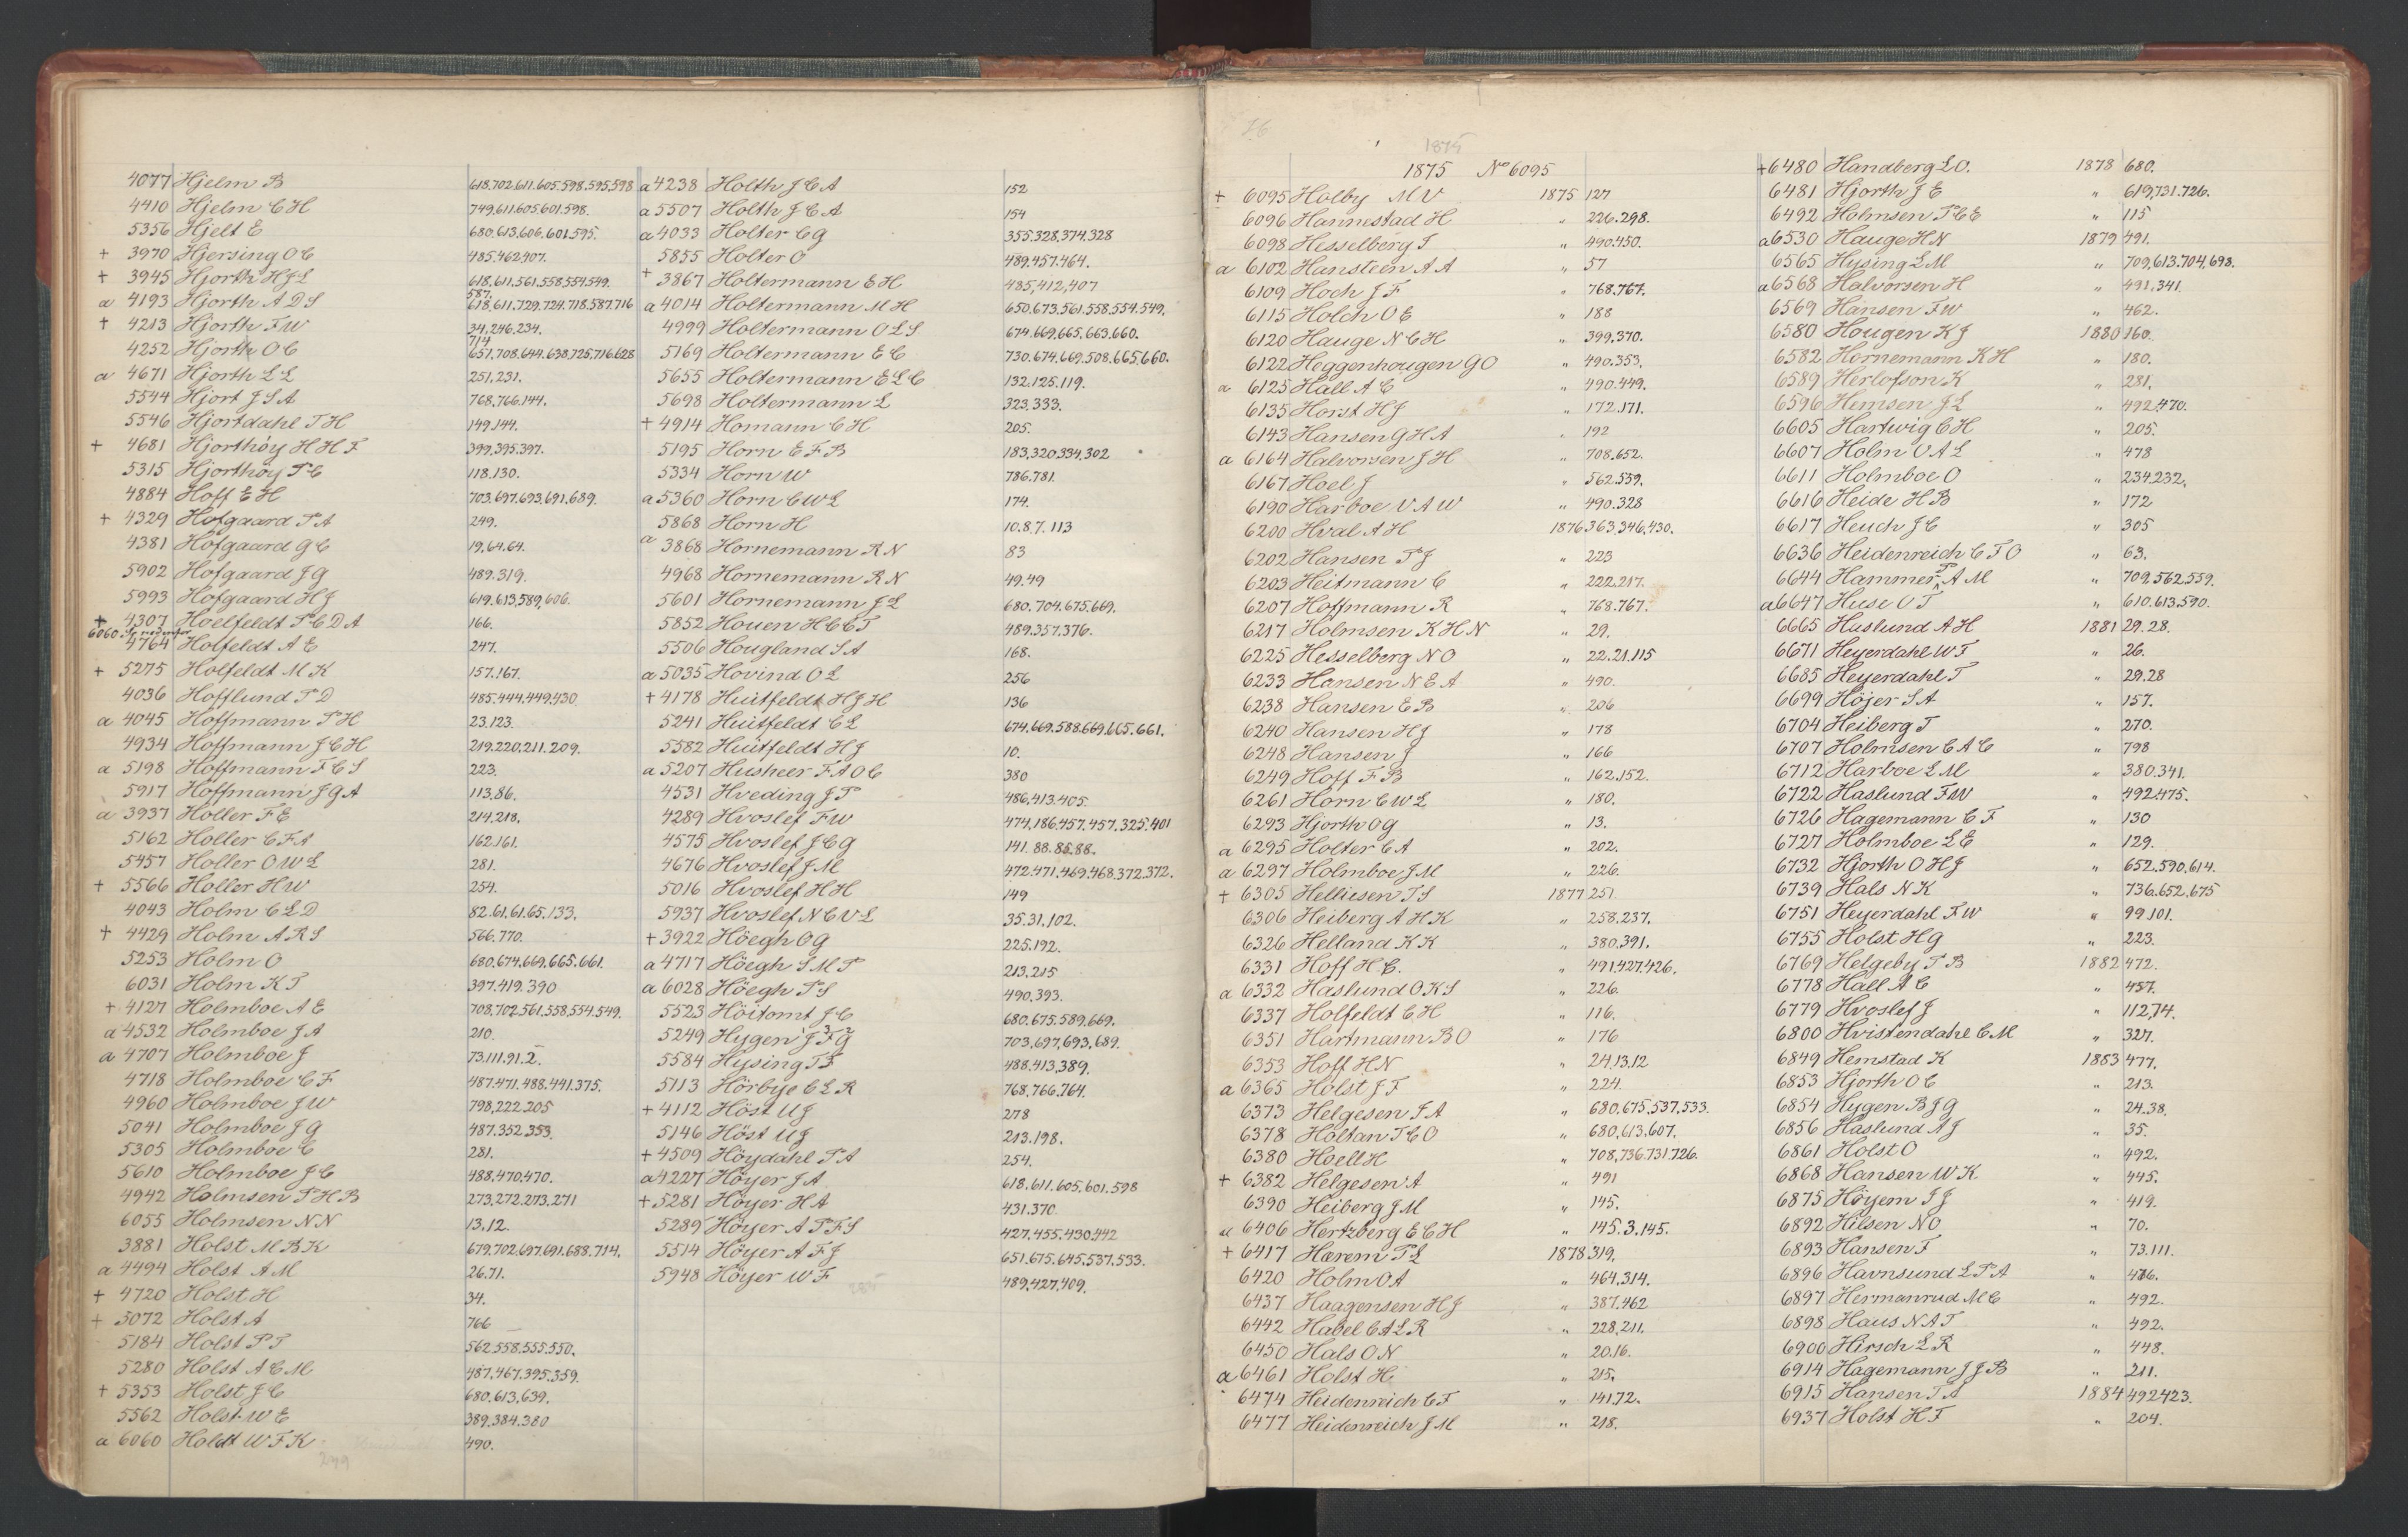 4077 Hjelm B 618.702.611.605.598.595.598
4410 Hjelm C H 749.611.605.601.598.
5356 Hjelt E 680.613.606.601.595.
+ 3970 Hjersing O C 485.462.407.
+ 3945 Hjorth H J L 618.611.561.558.554.549.
587.
a 4193 Hjorth A D S 618.611.729.724.718.587.716
+ 4213 Hjorth F W 34.246.234.
714
4252 Hjorth O C 651.708.644.638.725.716.628
a 4671 Hjorth L L 251.231.
5544 Hjort J S A 768.766.144.
5546 Hjortdahl T H 149.144.
+ 4681 Hjorthöy H H F 399.395.397.
5315 Hjorthöy P C 118.130.
4884 Hoff E H 703.697.693.691.689.
+ 4329 Hofgaard P A 249.
4381 Hofgaard G C 19.64.64.
5902 Hofgaard J G 489.319.
5993 Hofgaard H J 619.613.589.606.
+ 4307 Hoelfeldt P C D A 166.
6060 nedenfor
4764 Holfeldt A E 247.
+ 5275 Holfeldt M K 157.167.
4036 Hofflund P D 485.444.449.430
a 4045 Hoffmann P H 23.123.
4934 Hoffmann J C H 219.220.211.209.
a 5198 Hoffmann F C S 223.
5917 Hoffmann J G A 113.86.
a 3937 Holler F E 214.218.
5162 Holler C F A 162.161.
5457 Holler O W L 281.
+ 5566 Holler H W 254.
4043 Holm C L D 82.61.61.65.133.
+ 4429 Holm A R S 566.770.
5253 Holm O 680.674.669.665.661.
6031 Holm K T 397.419.390
+ 4127 Holmboe A E 708.702.561.558.554.549.
a 4532 Holmboe J A 210.
a 4707 Holmboe J 73.111.91.2.
4718 Holmboe C F 487.471.488.441.375.
4960 Holmboe J W 798.222.205
5041 Holmboe J G 487.352.353.
5305 Holmboe C 281.
5610 Holmboe J C 488.470.470.
4942 Holmsen P H B 273.272.273.271
6055 Holmsen N N 13.12.
3881 Holst M B K 679.702.697.691.688.714.
a 4494 Holst A M 26.71.
+ 4720 Holst H 34.
+ 5072 Holst A 766
5184 Holst P T 562.558.555.550.
5280 Holst A C M 487.467.395.359.
+ 5353 Holst J C 680.613.639.
5562 Holst W E 389.384.380
a 6060 Holdt W F K 490.
a 4238 Holth J C A 152
a 5507 Holth J C A 154
a 4033 Holter C G 355.328.374.328
5855 Holter O 489.457.464.
+ 3867 Holtermann E H 485.412.407
a 4014 Holtermann M H 650.673.561.558.554.549.
4999 Holtermann O L S 674.669.665.663.660.
5169 Holtermann E C 730.674.669.508.665.660.
5655 Holtermann E L C 132.125.119.
5698 Holtermann L 323.333.
+ 4914 Homann C H 205.
5195 Horn E F B 183.320.334.302
5334 Horn W 786.781.
a 5360 Horn C W L 174.
5868 Horn H 10.8.7.113
a 3868 Hornemann R N 83
4968 Hornemann R N 49.49
5601 Hornemann J L 680.704.675.669.
5852 Houen H C C T 489.357.376.
5506 Hougland S A 168.
a 5035 Hovind O L 256
+ 4178 Huitfeldt H J H 136
5241 Huitfeldt C L 674.669.588.669.665.661.
5582 Huitfeldt H J 10.
a 5207 Husheer F A O C 380
4531 Hveding J P 486.413.405.
4289 Hvoslef F W 474.186.457.457.325.401
4575 Hvoslef J C G 141.88.86.88.
4676 Hvoslef J M 472.471.469.468.372.372.
5016 Hvoslef H H 149
5937 Hvoslef N C V L 35.31.102.
+ 3922 Höegh O G 225.192.
a 4717 Höegh S M P 213.215
a 6028 Höegh P S 490.393.
5523 Höitomt J C 680.675.589.669.
5249 Hygen J F G 703.697.693.689.
5584 Hysing T F 488.413.389.
5113 Hörbye C L R 768.766.764.
+ 4112 Höst U J 278
5146 Höst U J 213.198.
+ 4509 Höydahl P A 254.
a 4227 Höyer J A 618.611.605.601.598
+ 5281 Höyer H A 431.370.
5289 Höyer A P F S 427.455.430.442
5514 Höyer A F J 651.675.645.537.533.
5948 Höyer W F 489.427.409.
1875
1875 No 6095
+ 6095 Holby M V 1875 127
6096 Hannestad H „ 226.298.
6098 Hesselberg T „ 490.450.
a 6102 Hansteen A A „ 57
6109 Hoch J F „ 768.767.
6115 Holch O E „ 188
6120 Hauge N C H „ 399.370.
6122 Heggenhougen G O „ 490.353.
a 6125 Hall A C „ 490.449.
6135 Horst H J „ 172.171.
6143 Hansen G H A „ 192
a 6164 Halvorsen J H „ 708.652.
6167 Hoel J „ 562.559.
6190 Harboe V A W „ 490.328
6200 Hval A H 1876 363.346.430.
6202 Hansen P J „ 223
6203 Heitmann C „ 222.217.
6207 Hoffmann R „ 768.767.
6217 Holmsen K H N „ 29.
6225 Hesselberg N O „ 22.21.115
6233 Hansen N E A „ 490.
6238 Hansen E B „ 206
6240 Hansen H J „ 178
6248 Hansen J „ 166
6249 Hoff F B „ 162.152.
6261 Horn C W L „ 180.
6293 Hjorth O G „ 13.
a 6295 Holter C A „ 202.
a 6297 Holmboe J M „ 226.
+ 6305 Helliesen T S 1877 251.
6306 Heiberg A H K „ 258.237.
6326 Helland K K „ 380.391.
6331 Hoff H C. „ 491.427.426.
a 6332 Haslund O K S „ 226.
6337 Holfeldt C H „ 116.
6351 Hartmann B O „ 176
6353 Hoff H N „ 24.13.12
a 6365 Holst J F „ 224.
6373 Helgesen S A „ 680.675.537.533.
6378 Holtan T C O „ 680.613.607.
6380 Hoell H „ 708.736.731.726.
+ 6382 Helgesen A „ 491
6390 Heiberg J M „ 145.
a 6406 Hertzberg E C H „ 145.3.145.
+ 6417 Hærem P L 1878 319.
6420 Holm O A „ 464.314.
6437 Haagensen H J „ 387.462
6442 Habel C A L R „ 228.211.
6450 Hals O N „ 20.16.
a 6461 Holst H „ 215.
6474 Heidenreich C F „ 141.72.
6477 Heidenreich J M „ 218.
+ 6480 Handberg L O. 1878 680.
6481 Hjorth J E „ 619.731.726.
6492 Holmsen P C E „ 115
a 6530 Hauge H N 1879 491.
6565 Hysing L M „ 709.613.704.698.
a 6568 Halvorsen H „ 491.341.
6569 Hansen F W „ 462.
6580 Hougen K J 1880 160.
6582 Hornemann K H „ 180.
6589 Herlofson K „ 281.
6596 Hemsen J L „ 492.470.
6605 Hartwig C H „ 205.
6607 Holm O A L „ 478
6611 Holmboe O „ 234.232.
6616 Heide H B „ 172
6617 Heuch J C „ 305
6636 Heidenreich C T O „ 63.
6644 Hammer P A M „ 709.562.559.
a 6647 Huse O T „ 610.613.590.
6665 Huslund A H 1881 29.28.
6671 Heyerdahl W T „ 26.
6685 Heyerdahl T „ 29.28
6699 Höjer S A „ 157.
6704 Heiberg T „ 270.
6707 Holmsen C A C „ 798
6712 Harboe L M „ 380.341.
6722 Haslund F W „ 492.475.
6726 Hagemann C F „ 130
6727 Holmboe L E „ 129.
6732 Hjorth O H J „ 652.590.614.
6739 Hals N K „ 736.652.675
6751 Heyerdahl F W „ 99.101.
6755 Holst H G „ 223.
6769 Helgeby P B 1882 472.
6778 Hall A C „ 457.
6779 Hvoslef J „ 112.74.
6800 Hvistendahl C M „ 327.
6849 Hemstad K 1883 477.
6853 Hjorth O C „ 213.
6854 Hygen B J G „ 24.38.
6856 Haslund A J „ 35.
6861 Holst O „ 492.
6868 Hansen W K „ 445.
6875 Höyem I J „ 419.
6892 Hilsen N O „ 70.
6893 Hansen F „ 73.111.
6896 Havnsund L P A „
6897 Hermanrud M C „ 492.
6898 Haus N A T „ 492.
6900 Hirsch L R „ 448.
6914 Hagemann J J B „ 211.
6915 Hansen T A 1884 492.423.
6937 Holst H F „ 204.